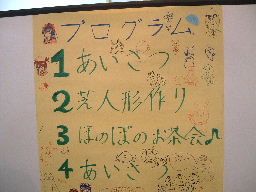 プログラム
1 あいさつ
2 芝人形作り
3 ほのぼのお茶会♪
4 あいさつ